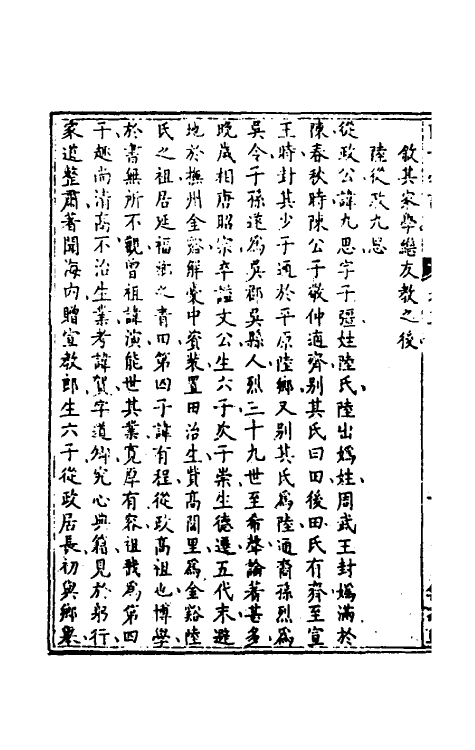 敘其家學繼友教之後
陸從政九思
從政公諱九思字子彊姓陸氏陸出媯姓周武王封媯滿於
陳春秋時陳公子敬仲適齊别其氏曰田後田氏有齊至宣
王時封其少子通於平原陸鄉又别其氏爲陸通裔孫烈爲
吳令子孫遂爲吳郡吳縣人烈三十九世至希聲論著甚多
晚歲相唐昭宗卒諡文公生六子次子崇生德遷五代末避
地於撫州金谿解橐中資裝置田治生貲高閭里爲金谿陸
氏之祖居延福鄉之青田第四子諱有程從政高祖也博學
於書無所不觀曾祖諱演能世其業寬厚有容祖戩爲第四
子趣尚清高不治生業考諱賀字道鄉究心典籍見於躬行
家道整肅著聞海内贈宣教郎生六子從政居長初與鄉舉